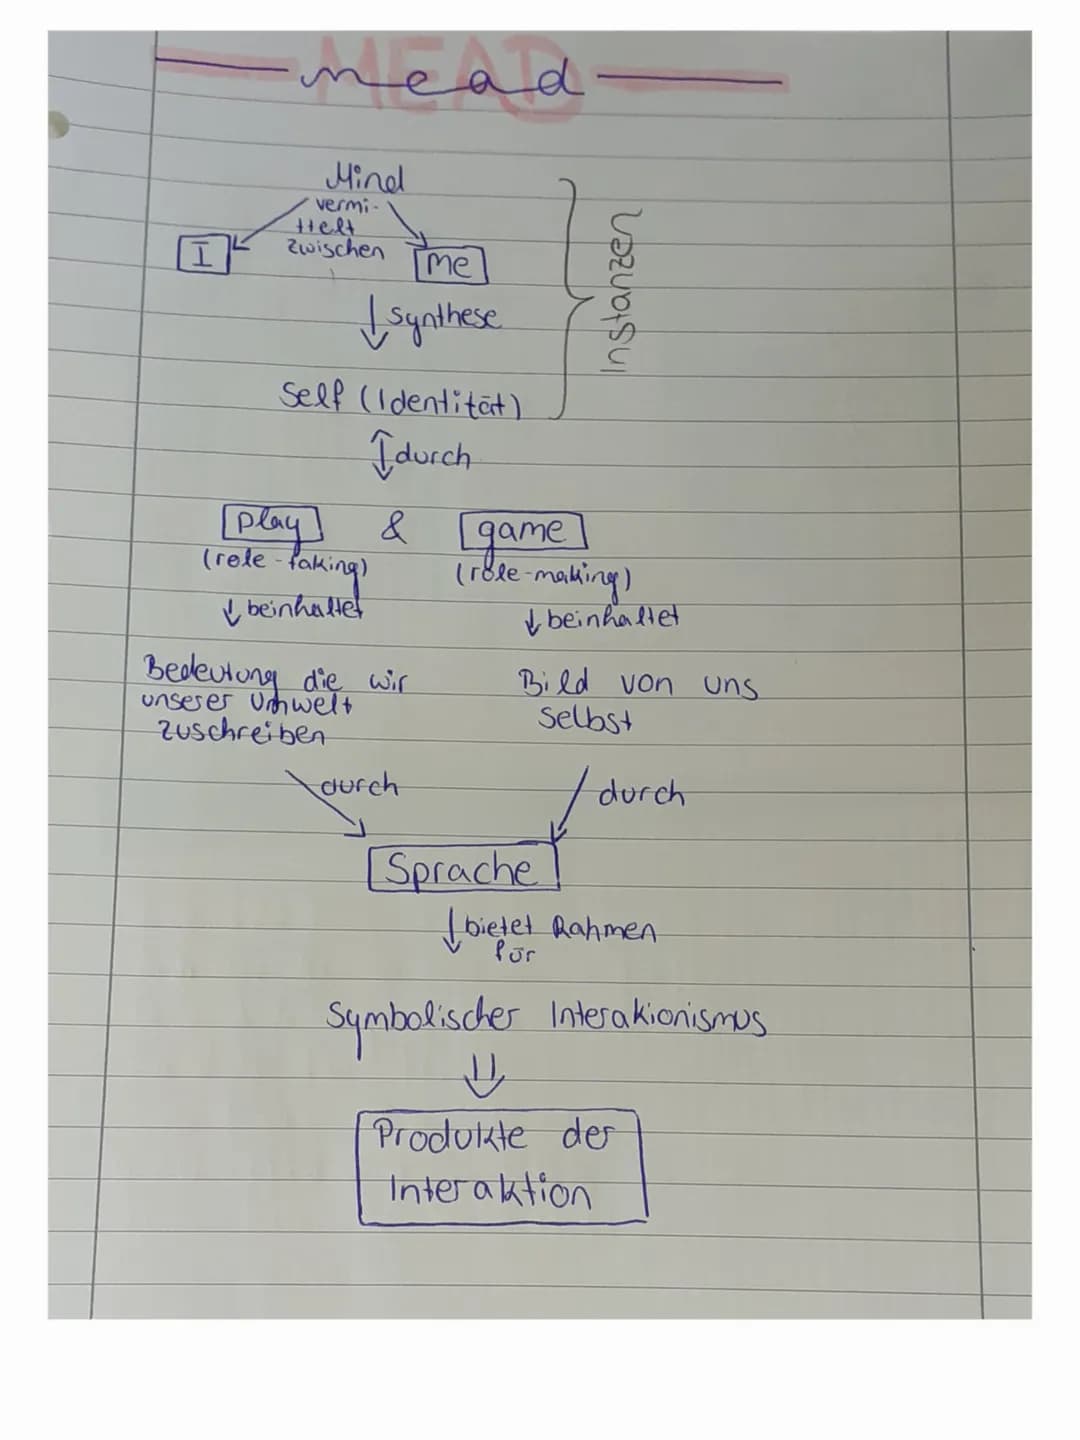 MEAD
mead
Mind
vermi-
ttelt
zwischen
I
me
Instanzen
synthese
Self (Identität)
durch
play & game
(role-taking) (role-making)
beinhaltet beinhaltet
Bedeutung die wir
unserer Umwelt
zuschreiben
Bild von uns
selbst
durch durch
Sprache
bietet Rahmen
für
Symbolischer Interakionismus
Produkte der
Interaktion